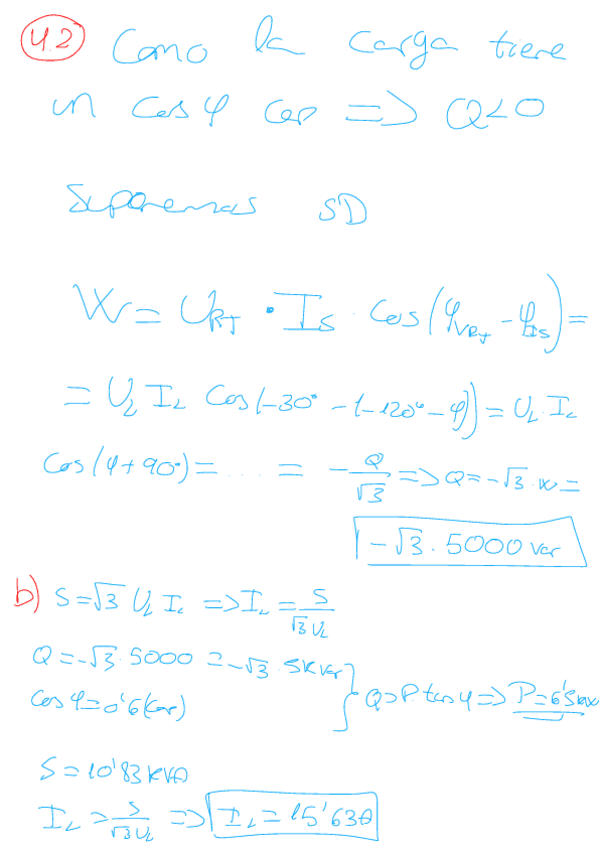 4.2 Como la carga tiene
un cos φ cap => Q<0
Suponemos SD
W = U_RT · I_S · cos(φ_VRT - φ_IS) =
= U_L I_L cos(-30° - (-120° - φ)) = U_L · I_L
cos(φ + 90°) = .... = - Q/√3 => Q = -√3 · W =
-√3 · 5000 var
b) S = √3 U_L I_L => I_L = S/(√3 U_L)
Q = -√3 · 5000 = -√3 · 5kvar
cos φ = 0'6 (cap)
Q = P tan φ => P = 6'5kw
S = 10'83 KVA
I_L = S/(√3 U_L) => I_L = 15'63A